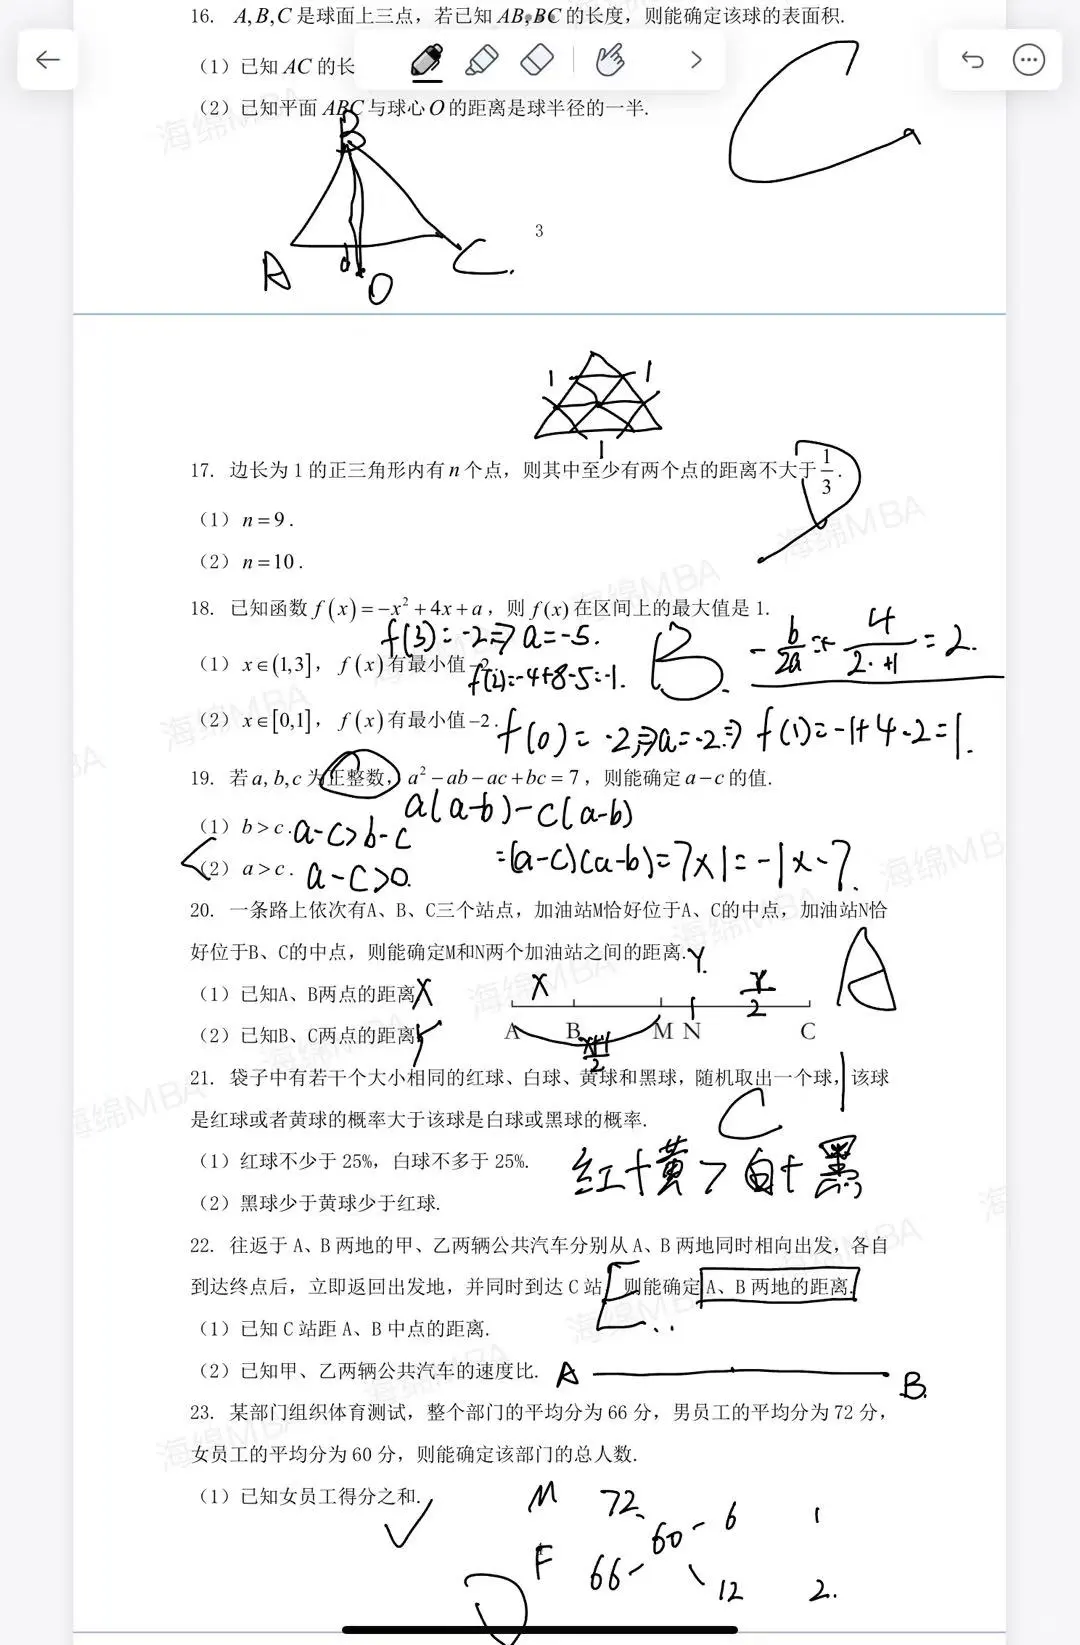 16. A,B,C 是球面上三点，若已知 AB,BC 的长度，则能确定该球的表面积.
（1）已知 AC 的长
（2）已知平面 ABC 与球心 O 的距离是球半径的一半.
B
A
d
O
C.
3
1
1
1
17. 边长为 1 的正三角形内有 n 个点，则其中至少有两个点的距离不大于 1/3.
（1）n=9.
（2）n=10.
18. 已知函数 f(x)=-x²+4x+a，则 f(x) 在区间上的最大值是 1.
f(3)=-2⇒a=-5.
（1）x∈(1,3]，f(x)有最小值-2.
f(2)=-4+8-5=-1.
B.
4
2·+1
=2.
（2）x∈[0,1]，f(x)有最小值-2.
f(0)=-2⇒a=-2⇒f(1)=-1+4-2=1.
19. 若 a, b,c 为正整数，a²-ab-ac+bc=7，则能确定 a-c 的值.
a(a-b)-c(a-b)
（1）b>c.
a-c>b-c
=(a-c)(a-b)=7×1=-1×-7.
（2）a>c.
a-c>0.
20. 一条路上依次有A、B、C三个站点，加油站M恰好位于A、C的中点，加油站N恰
好位于B、C的中点，则能确定M和N两个加油站之间的距离.
Y.
（1）已知A、B两点的距离
X
X
Y/2
A
（2）已知B、C两点的距离
Y
A B M N C
X+Y/2
21. 袋子中有若干个大小相同的红球、白球、黄球和黑球，随机取出一个球，该球
是红球或者黄球的概率大于该球是白球或黑球的概率.
C
（1）红球不少于 25%，白球不多于 25%.
红+黄>白+黑
（2）黑球少于黄球少于红球.
22. 往返于 A、B 两地的甲、乙两辆公共汽车分别从 A、B 两地同时相向出发，各自
到达终点后，立即返回出发地，并同时到达 C 站，则能确定 A、B 两地的距离.
E..
（1）已知 C 站距 A、B 中点的距离.
（2）已知甲、乙两辆公共汽车的速度比.
A
B.
23. 某部门组织体育测试，整个部门的平均分为 66 分，男员工的平均分为 72 分，
女员工的平均分为 60 分，则能确定该部门的总人数.
（1）已知女员工得分之和.
M 72 6 1
60
F 66 12 2.
D
海绵MBA